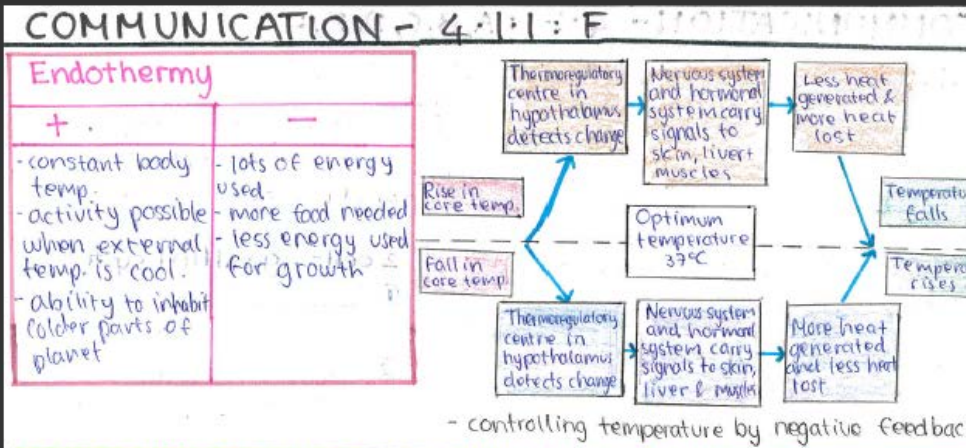 COMMUNICATION - 4.1.1 : F
Endothermy
+
-
- constant body
temp.
- activity possible
when external
temp. is cool.
- ability to inhabit
colder parts of
planet
- lots of energy
used
- more food needed
- less energy used
for growth
Rise in
core temp.
Thermoregulatory
centre in
hypothalamus
detects change
Nervous system
and hormonal
system carry
signals to
skin, liver +
muscles
Less heat
generated &
more heat
lost
Temperatu
falls
Optimum
temperature
37°C
Fall in
core temp.
Thermoregulatory
centre in
hypothalamus
detects change
Nervous system
and hormonal
system carry
signals to skin,
liver & muscles
More heat
generated
and less heat
lost
Tempera
rises
- controlling temperature by negative feedbac